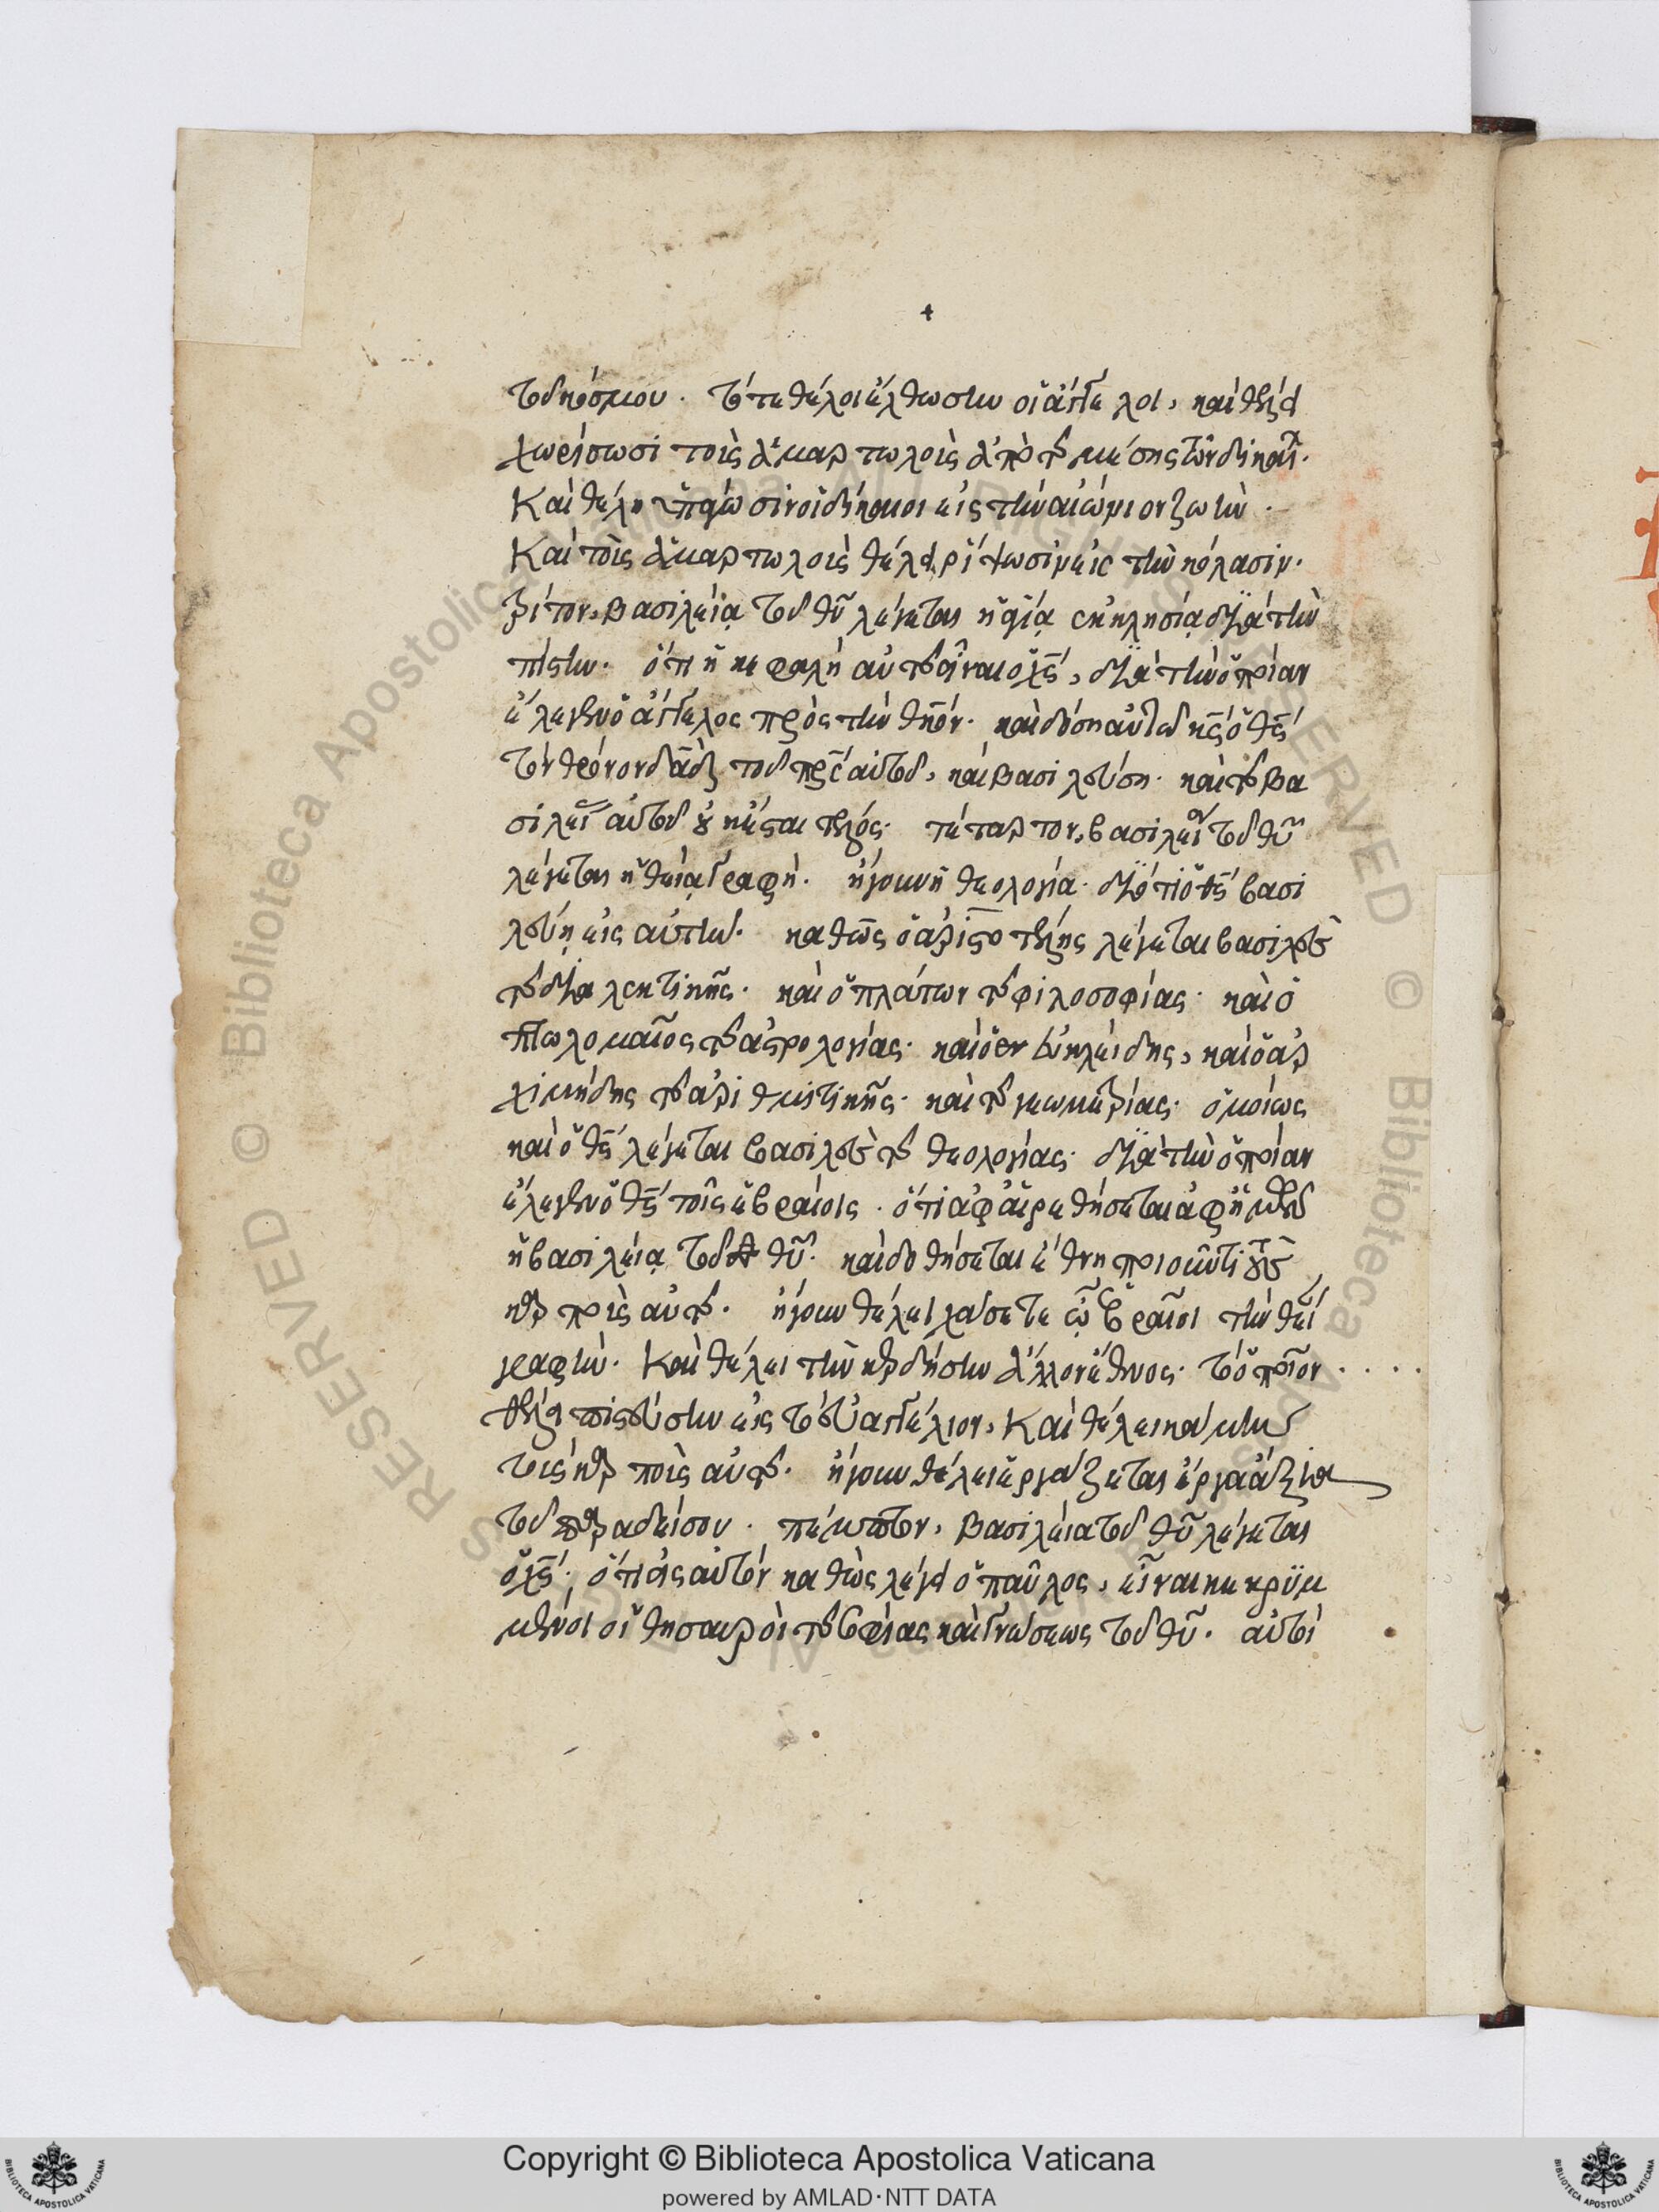 τοῦ κόσμου. τότε θέλοι ἔλθωσιν οἱ ἄγγελοι, καὶ θέλει
χωρίσωσι τοὺς ἁμαρτωλοὺς ἀπὸ τῆς μέσης τῶν δικαί.
Καὶ θέλει ὑπάγωσιν οἱ δίκαιοι εἰς τὴν αἰώνιον ζωὴν.
Καὶ τοὺς ἁμαρτωλοὺς θέλει ρίψωσιν εἰς τὴν κόλασιν.
τρίτον, βασιλεία τοῦ θῦ λέγεται ἡ ἁγία ἐκκλησία διὰ τὴν
πίστιν. ὅτι ἡ κεφαλὴ αὐτῆς εἶναι ὁ χς, διὰ τὴν ὁποίαν
ἔλεγεν ὁ ἄγγελος πρὸς τὴν θκον. καὶ δώσει αὐτῶ κς ὁ θς
τὸν θρόνον δαδ τοῦ πρς αὐτοῦ, καὶ βασιλεύσει. καὶ τῆς βα
σιλεί αὐτοῦ οὐκ ἔσται τέλος. τέταρτον, βασιλεία τοῦ θῦ
λέγεται ἡ θεία γραφὴ. ἤγουν ἡ θεολογία. διότι ὁ θς βασι
λεύει εἰς αὐτὴν. καθὼς ὁ ἀριστοτέλης λέγεται βασιλεὺς
τῆς διαλεκτικῆς. καὶ ὁ πλάτων τῆς φιλοσοφίας. καὶ ὁ
πτωλομαῖος τῆς ἀστρολογίας. καὶ ὁ εὐκλείδης, καὶ ὁ ἀρ
χιμήδης τῆς ἀριθμιτικῆς. καὶ τῆς γεωμετρίας. ὁμοίως
καὶ ὁ θς λέγεται βασιλεὺς τῆς θεολογίας. διὰ τὴν ὁποίαν
ἔλεγεν ὁ θς τοῖς ἑβραίοις. ὅτι ἀφαιρεθήσεται ἀφ' ἡμῶν
ἡ βασιλεία τοῦ θῦ. καὶ δοθήσεται ἔθνη ποιοῦντι τοὺς
καρποὺς αὐτῆς. ἤγουν θέλει χάσετε ὦ ἑβραῖοι τὴν θεί
γραφὴν. Καὶ θέλει τὴν κερδήσιν ἄλλον ἔθνος. τὸ ὁποῖον
θέλει πιστεύσιν εἰς τὸ εὐαγγέλιον, Καὶ θέλει κάμιν
τοὺς καρποὺς αὐτῆς. ἤγουν θέλει ἐργάζεται ἔργα ἄξια
τοῦ παραδείσου. πέμπτον, βασιλεία τοῦ θῦ λέγεται
ὁ χς. ὅτι εἰς αὐτὸν καθὼς λέγει ὁ παῦλος, εἶναι κεκρυμ
μένοι οἱ θησαυροὶ τῆς σοφίας καὶ γνώσεως τοῦ θῦ. αὐτὶ
Copyright © Biblioteca Apostolica Vaticana
powered by AMLAD·NTT DATA